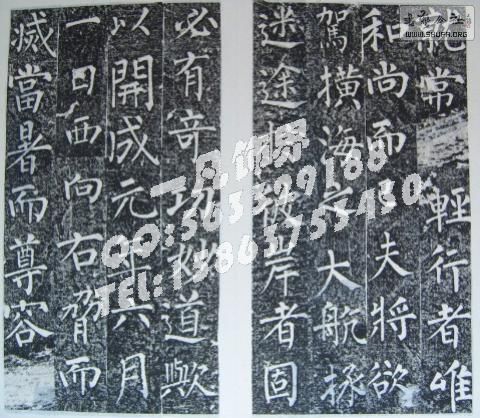 就常輕行者唯
和尚而已夫將欲
駕橫海之大航拯
迷途於彼岸者固
必有奇功妙道歟
以開成元年六月
一日西向右脅而
滅當暑而尊容
一凡饰界
QQ:563329188
TEL:15863753450